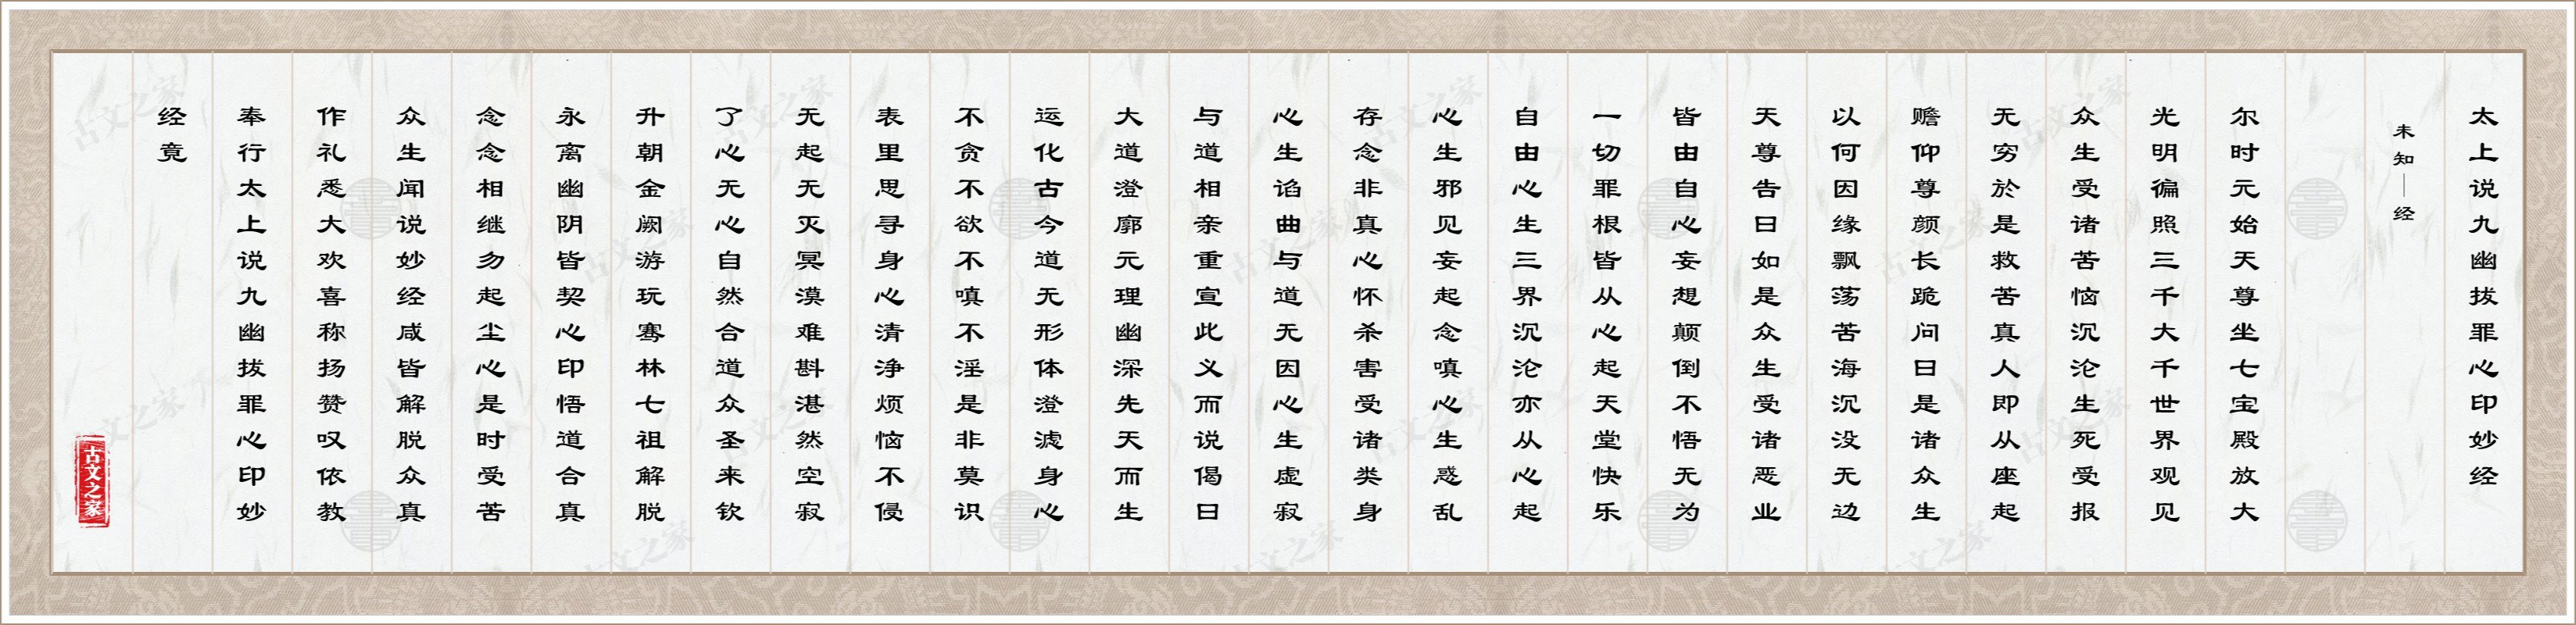 太上说九幽拔罪心印妙经
未知｜经
尔时元始天尊坐七宝殿放大
光明徧照三千大千世界观见
众生受诸苦恼沉沦生死受报
无穷於是救苦真人即从座起
瞻仰尊颜长跪问曰是诸众生
以何因缘飘荡苦海沉没无边
天尊告曰如是众生受诸恶业
皆由自心妄想颠倒不悟无为
一切罪根皆从心起天堂快乐
自由心生三界沉沦亦从心起
心生邪见妄起念嗔心生惑乱
存念非真心怀杀害受诸类身
心生谄曲与道无因心生虚寂
与道相亲重宣此义而说偈曰
大道澄廓元理幽深先天而生
运化古今道无形体澄滤身心
不贪不欲不嗔不淫是非莫识
表里思寻身心清净烦恼不侵
无起无灭冥漠难斟湛然空寂
了心无心自然合道众圣来钦
升朝金阙游玩骞林七祖解脱
永离幽阴皆契心印悟道合真
念念相继勿起尘心是时受苦
众生闻说妙经咸皆解脱众真
作礼悉大欢喜称扬赞叹依教
奉行太上说九幽拔罪心印妙
经竟
古文之家